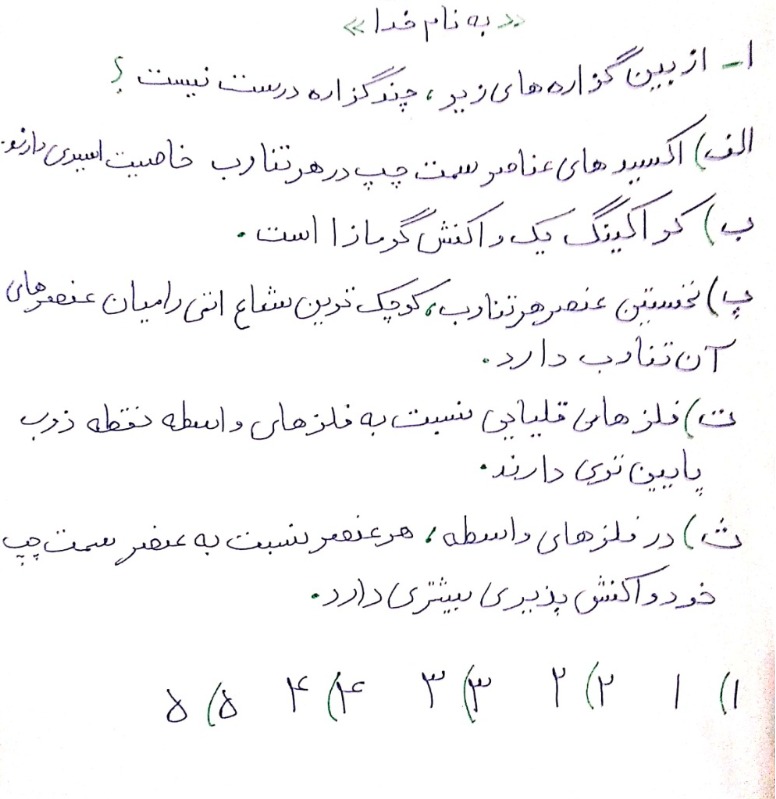 «به نام خدا»
۱- از بین گزاره های زیر، چند گزاره درست نیست؟
الف) اکسید های عناصر سمت چپ در هر تناوب خاصیت اسیدی دارند.
ب) کراکینگ یک واکنش گرمازا است.
پ) نخستین عنصر هر تناوب، کوچک ترین شعاع اتمی را میان عنصرهای
آن تناوب دارد.
ت) فلزهای قلیایی نسبت به فلزهای واسطه نقطه ذوب
پایین تری دارند.
ث) در فلزهای واسطه، هر عنصر نسبت به عنصر سمت چپ
خود واکنش پذیری بیشتری دارد.
۱) ۱ ۲) ۲ ۳) ۳ ۴) ۴ ۵) ۵